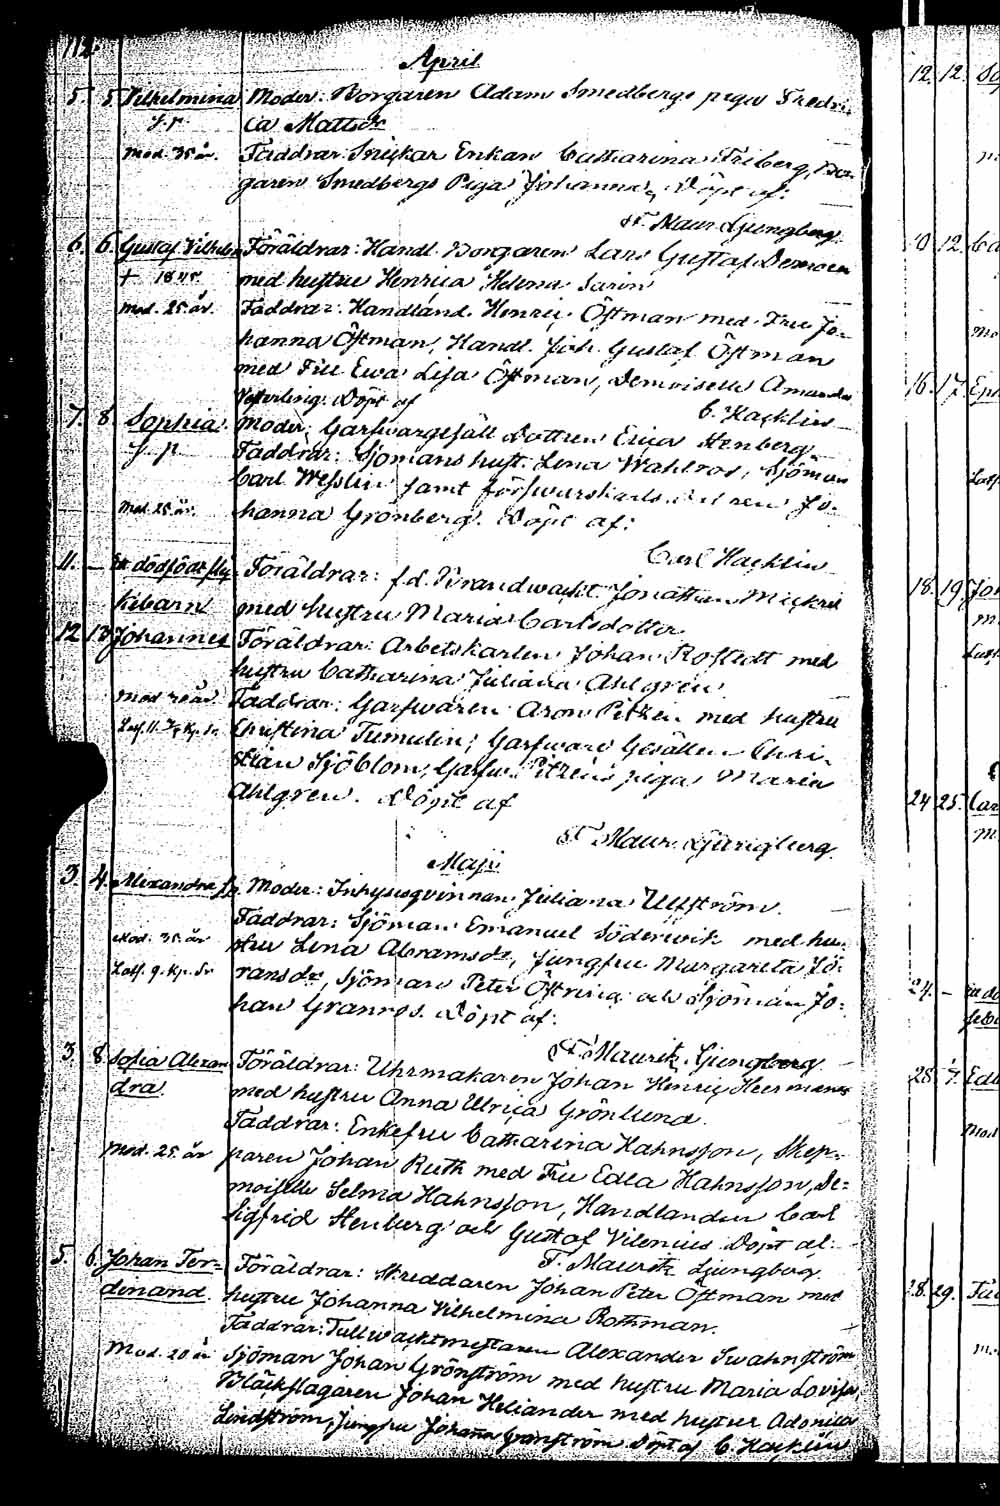 112.
April
5. 5. Vilhelmina Moder: Borgaren Adam Smedbergs piga Fredri-
f. p. ca Mattsdr
Mod. 35 år. Faddrar: Snickar Enkan Catharina Friberg, Bor-
garen Smedbergs Piga Johanna, Döpt af:
F. Maur. Ljungberg.
6. 6. Gustaf Vilhelm Föräldrar: Handl. Borgaren Lars Gustaf
+ 1845. med hustru Henrica Helena Sarin
Mod. 25 år. Faddrar: Handland. Henric Östman med Fru Jo-
hanna Östman, Handl. Joh. Gustaf Östman
med Fru Ewa Lisa Östman, Demoiselle Amanda
Vesterling. Döpt af
C. Hacklin
7. 8. Sophia. Moder: Garfwaregesäll Dottren Erica Stenberg
f. p. Faddrar: Sjömans hust. Lena Wahlros, Sjöman
Carl Wesslin samt försvarskarls Jo-
Mod. 25 år. hanna Grönberg. Döpt af:
Carl Hacklin
11. — Ett dödfödt flic- Föräldrar: f.d. Brandwacht. Jonathan Mickels
kebarn med hustru Maria Carlsdotter
12. 13. Johannes Föräldrar: Arbetskarlen Johan Rostedt med
hustru Catharina Juliana Ahlgren
Mod år Faddrar: Garfwaren Aron Pitzén med hustru
Christina Tumulin; Garfware Gesällen Chri-
stian Sjöblom, Garfw. Pitzéns piga Maria
Ahlgren. Döpt af
F. Maur. Ljungberg.
Maji
3. 4. Alexandra f.p. Moder: Inhysesqvinnan Juliana Ulfström.
Faddrar: Sjöman Emanuel Söderwik med hu-
Mod. 35 år stru Lena Abramsdr, Jungfru Margareta Jö-
Latf. 9. Kp. Sr. ransdr, Sjöman Peter Östring och Sjöman Jo-
han Granros. Döpt af:
F. Mauritz Ljungberg
3. 8. Sofia Alexan- Föräldrar: Uhrmakaren Johan Henric Heerman
dra. med hustru Anna Ulrica Grönlund.
Faddrar: Enkefru Catharina Hahnsson, Skep-
Mod. 25 år paren Johan Ruth med Fru Edla Hahnsson, De-
moiselle Selma Hahnsson, Handlanden Carl
Sigfrid Stenberg och Gustaf Vilenius. Döpt af:
F. Mauritz Ljungberg.
5. 6. Johan Fer- Föräldrar: Skreddaren Johan Peter Östman med
dinand. hustru Johanna Vilhelmina Rothman.
Faddrar: Tullwachtmestaren Alexander Swahnström
Mod. 20 år Sjöman Johan Grönström med hustru Maria Lovisa,
Bläckslagaren Johan Heliander med hustru
Lindström, Jungfru Johanna Grönström. Döpt af C. Hacklin
12. 12.
10. 12.
16. 17.
18. 19.
24. 25.
24. —
28.
28. 29.